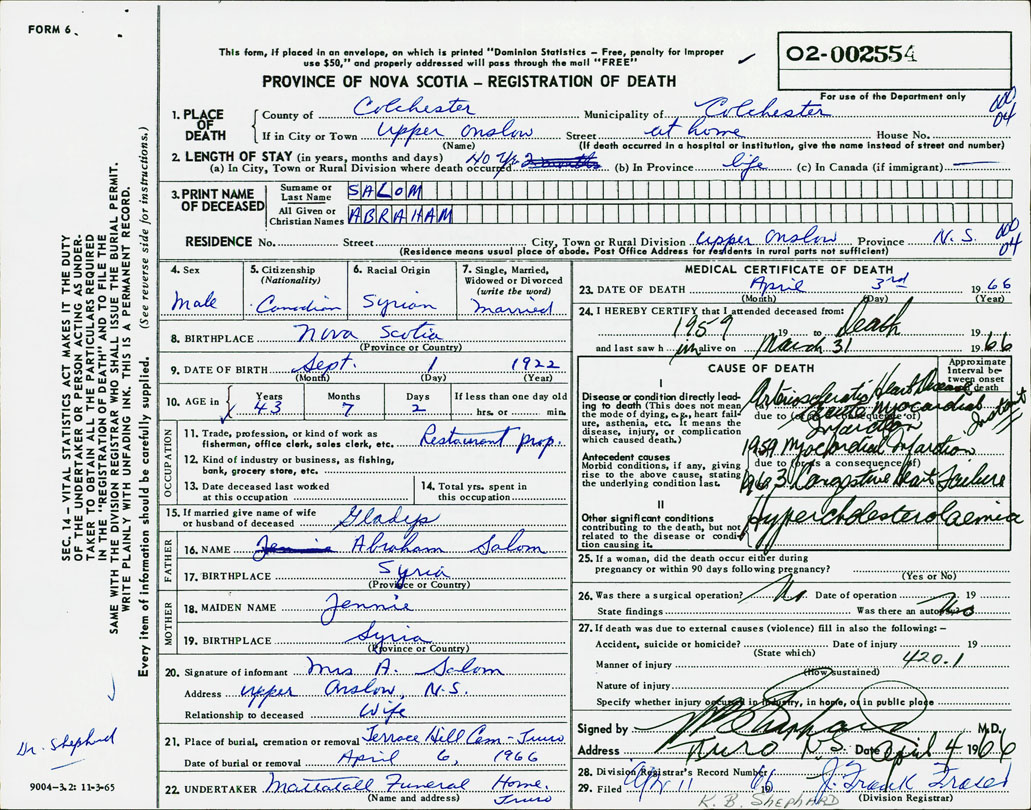 FORM 6
This form, if placed in an envelope, on which is printed "Dominion Statistics – Free, penalty for improper
use $50," and properly addressed will pass through the mail "FREE"
O2-002554
PROVINCE OF NOVA SCOTIA – REGISTRATION OF DEATH
For use of the Department only
1. PLACE OF DEATH County of Colchester Municipality of Colchester
If in City or Town Upper Onslow Street at home House No.
(Name) (If death occurred in a hospital or institution, give the name instead of street and number)
04
2. LENGTH OF STAY (in years, months and days)
(a) In City, Town or Rural Division where death occurred 40 Yr. (b) In Province life (c) In Canada (if immigrant) —
3. PRINT NAME OF DECEASED Surname or Last Name SALOM
All Given or Christian Names ABRAHAM
RESIDENCE No. Street City, Town or Rural Division Upper Onslow Province N.S.
04
(Residence means usual place of abode. Post Office Address for residents in rural parts not sufficient)
4. Sex Male
5. Citizenship (Nationality) Canadian
6. Racial Origin Syrian
7. Single, Married, Widowed or Divorced (write the word) Married
8. BIRTHPLACE Nova Scotia
(Province or Country)
9. DATE OF BIRTH Sept. 1 1922
(Month) (Day) (Year)
10. AGE in Years 43 Months 7 Days 2 If less than one day old hrs. or min.
OCCUPATION
11. Trade, profession, or kind of work as fisherman, office clerk, sales clerk, etc. Restaurant prop.
12. Kind of industry or business, as fishing, bank, grocery store, etc.
13. Date deceased last worked at this occupation
14. Total yrs. spent in this occupation
15. If married give name of wife or husband of deceased Gladys
FATHER
16. NAME Jennie Abraham Salom
17. BIRTHPLACE Syria
(Province or Country)
MOTHER
18. MAIDEN NAME Jennie
19. BIRTHPLACE Syria
(Province or Country)
20. Signature of informant Mrs A. Salom
Address Upper Onslow, N.S.
Relationship to deceased Wife
21. Place of burial, cremation or removal Terrace Hill Cem - Truro
Date of burial or removal April 6, 1966
22. UNDERTAKER Mattatall Funeral Home, Truro
(Name and address)
MEDICAL CERTIFICATE OF DEATH
23. DATE OF DEATH April 3rd 1966
(Month) (Day) (Year)
24. I HEREBY CERTIFY that I attended deceased from:
1959 19 to Death 19
and last saw h im alive on March 31 1966
CAUSE OF DEATH
Approximate Interval between onset & death
I
Disease or condition directly leading to death (This does not mean the mode of dying, e.g., heart failure, asthenia, etc. It means the disease, injury, or complication which caused death.)
(a) Arteriosclerotic Heart Disease
due to (or as a consequence of)
Acute Myocardial Infarction Instant
Antecedent causes
Morbid conditions, if any, giving rise to the above cause, stating the underlying condition last.
1959 Myocardial Infarction
due to (or as a consequence of)
1963 Congestive Heart Failure
II
Other significant conditions
contributing to the death, but not related to the disease or condition causing it.
Hypercholesterolaemia
25. If a woman, did the death occur either during pregnancy or within 90 days following pregnancy?
(Yes or No)
26. Was there a surgical operation? No Date of operation 19
State findings Was there an autopsy? No
27. If death was due to external causes (violence) fill in also the following: –
Accident, suicide or homicide? Date of injury 19
(State which)
420.1
Manner of injury
(How sustained)
Nature of injury
Specify whether injury occurred in industry, in home, or in public place
Signed by M.D.
Address Truro N.S. Date April 4 1966
28. Division Registrar's Record Number
29. Filed Apr 11 1966 J. Frank Fraser
(Division Registrar)
K. B. SHEPHARD
SEC. 14 – VITAL STATISTICS ACT MAKES IT THE DUTY
OF THE UNDERTAKER OR PERSON ACTING AS UNDERTAKER TO OBTAIN ALL THE PARTICULARS REQUIRED
IN THE "REGISTRATION OF DEATH" AND TO FILE THE
SAME WITH THE DIVISION REGISTRAR WHO SHALL ISSUE THE BURIAL PERMIT.
WRITE PLAINLY WITH UNFADING INK. THIS IS A PERMANENT RECORD.
Every item of information should be carefully supplied. (See reverse side for instructions.)
Dr. Shephard
9004–3.2: 11-3-65